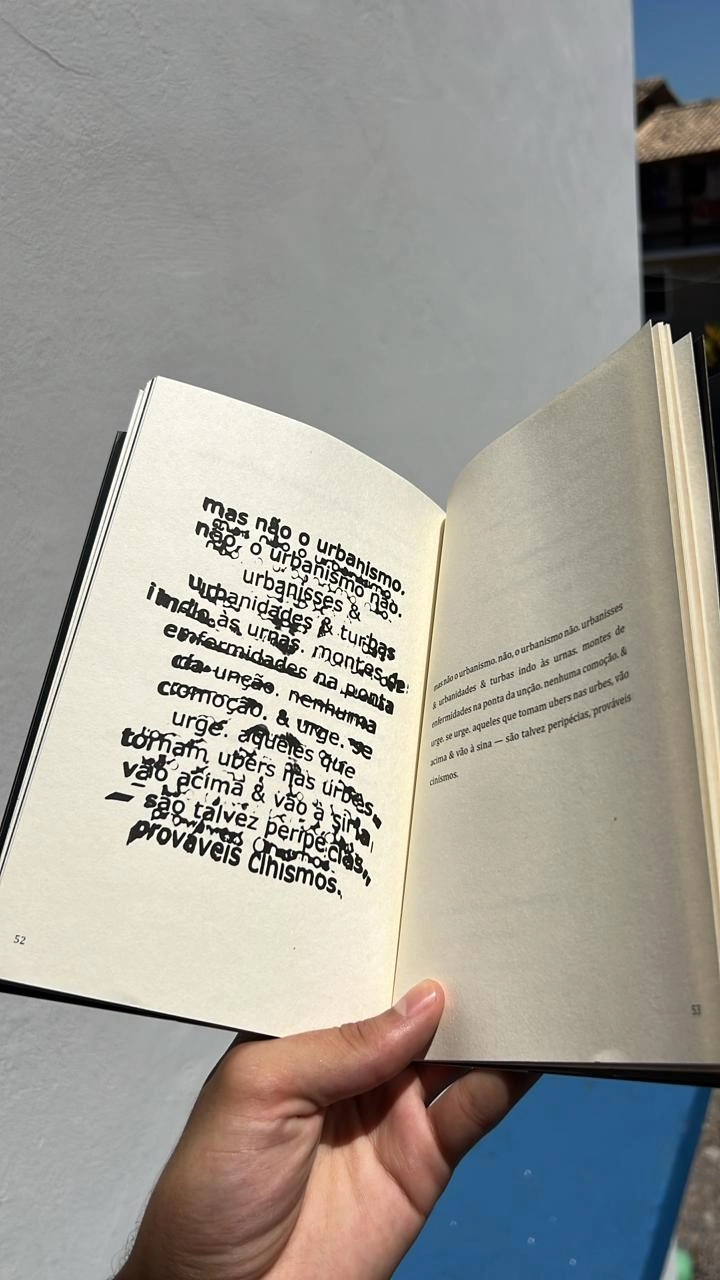 mas não o urbanismo.
não, o urbanismo não.
urbanisses &
urbanidades & turbas
indo às urnas. montes de
enfermidades na ponta
da unção. nenhuma
comoção. & urge. se
urge. aqueles que
tomam ubers nas urbes,
vão acima & vão à sina
— são talvez peripécias,
prováveis cinismos.
52
mas não o urbanismo. não, o urbanismo não. urbanisses
& urbanidades & turbas indo às urnas. montes de
enfermidades na ponta da unção. nenhuma comoção. &
urge. se urge. aqueles que tomam ubers nas urbes, vão
acima & vão à sina — são talvez peripécias, prováveis
cinismos.
53